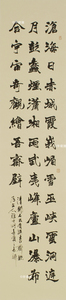 滄海日赤城霞峨嵋雪巫峽雲洞庭
月彭蠡煙瀟湘雨武夷峰廬山瀑布
合宇宙奇觀繪吾齋壁